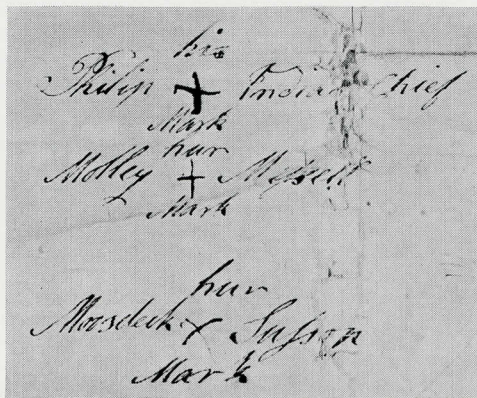 his
Philip + Indian Chief
Mark
hur
Molley + Messell
Mark
hur
Moosdeck × Susson
Mark